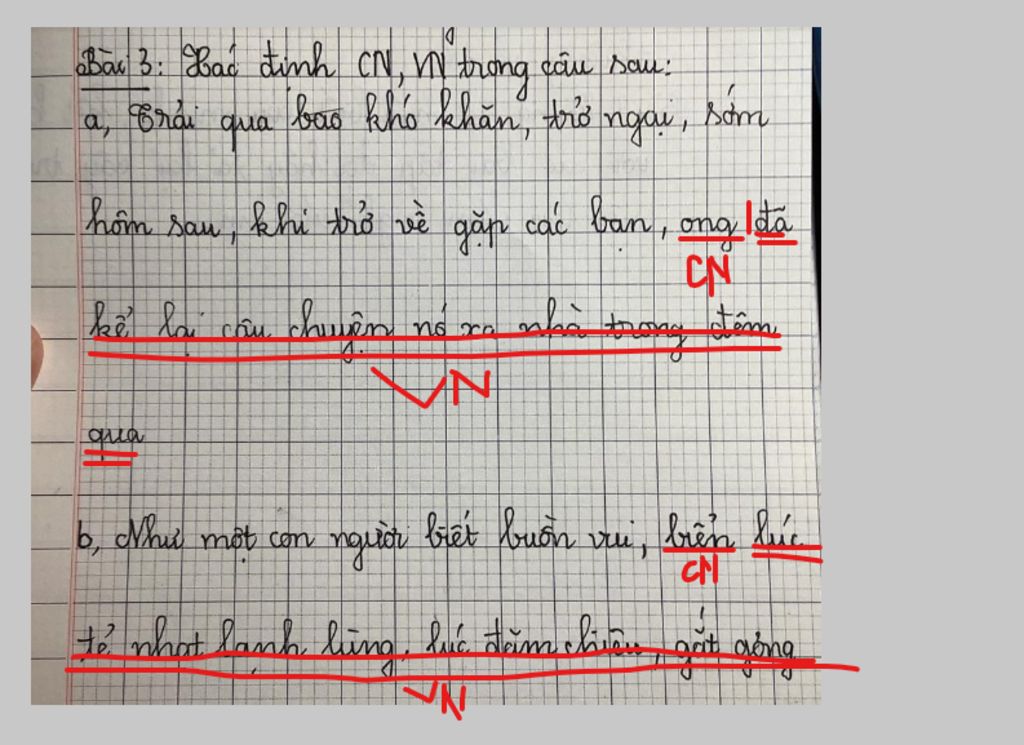 Bài 3: Xác định CN, VN trong câu sau:
a, Trải qua bao khó khăn, trở ngại, sớm
hôm sau, khi trở về gặp các bạn, ong | đã
CN
kể lại câu chuyện nó xa nhà trong đêm
VN
qua
b, Như một con người biết buồn vui, biển lúc
CN
tẻ nhạt lạnh lùng, lúc đăm chiêu, gắt gỏng
VN